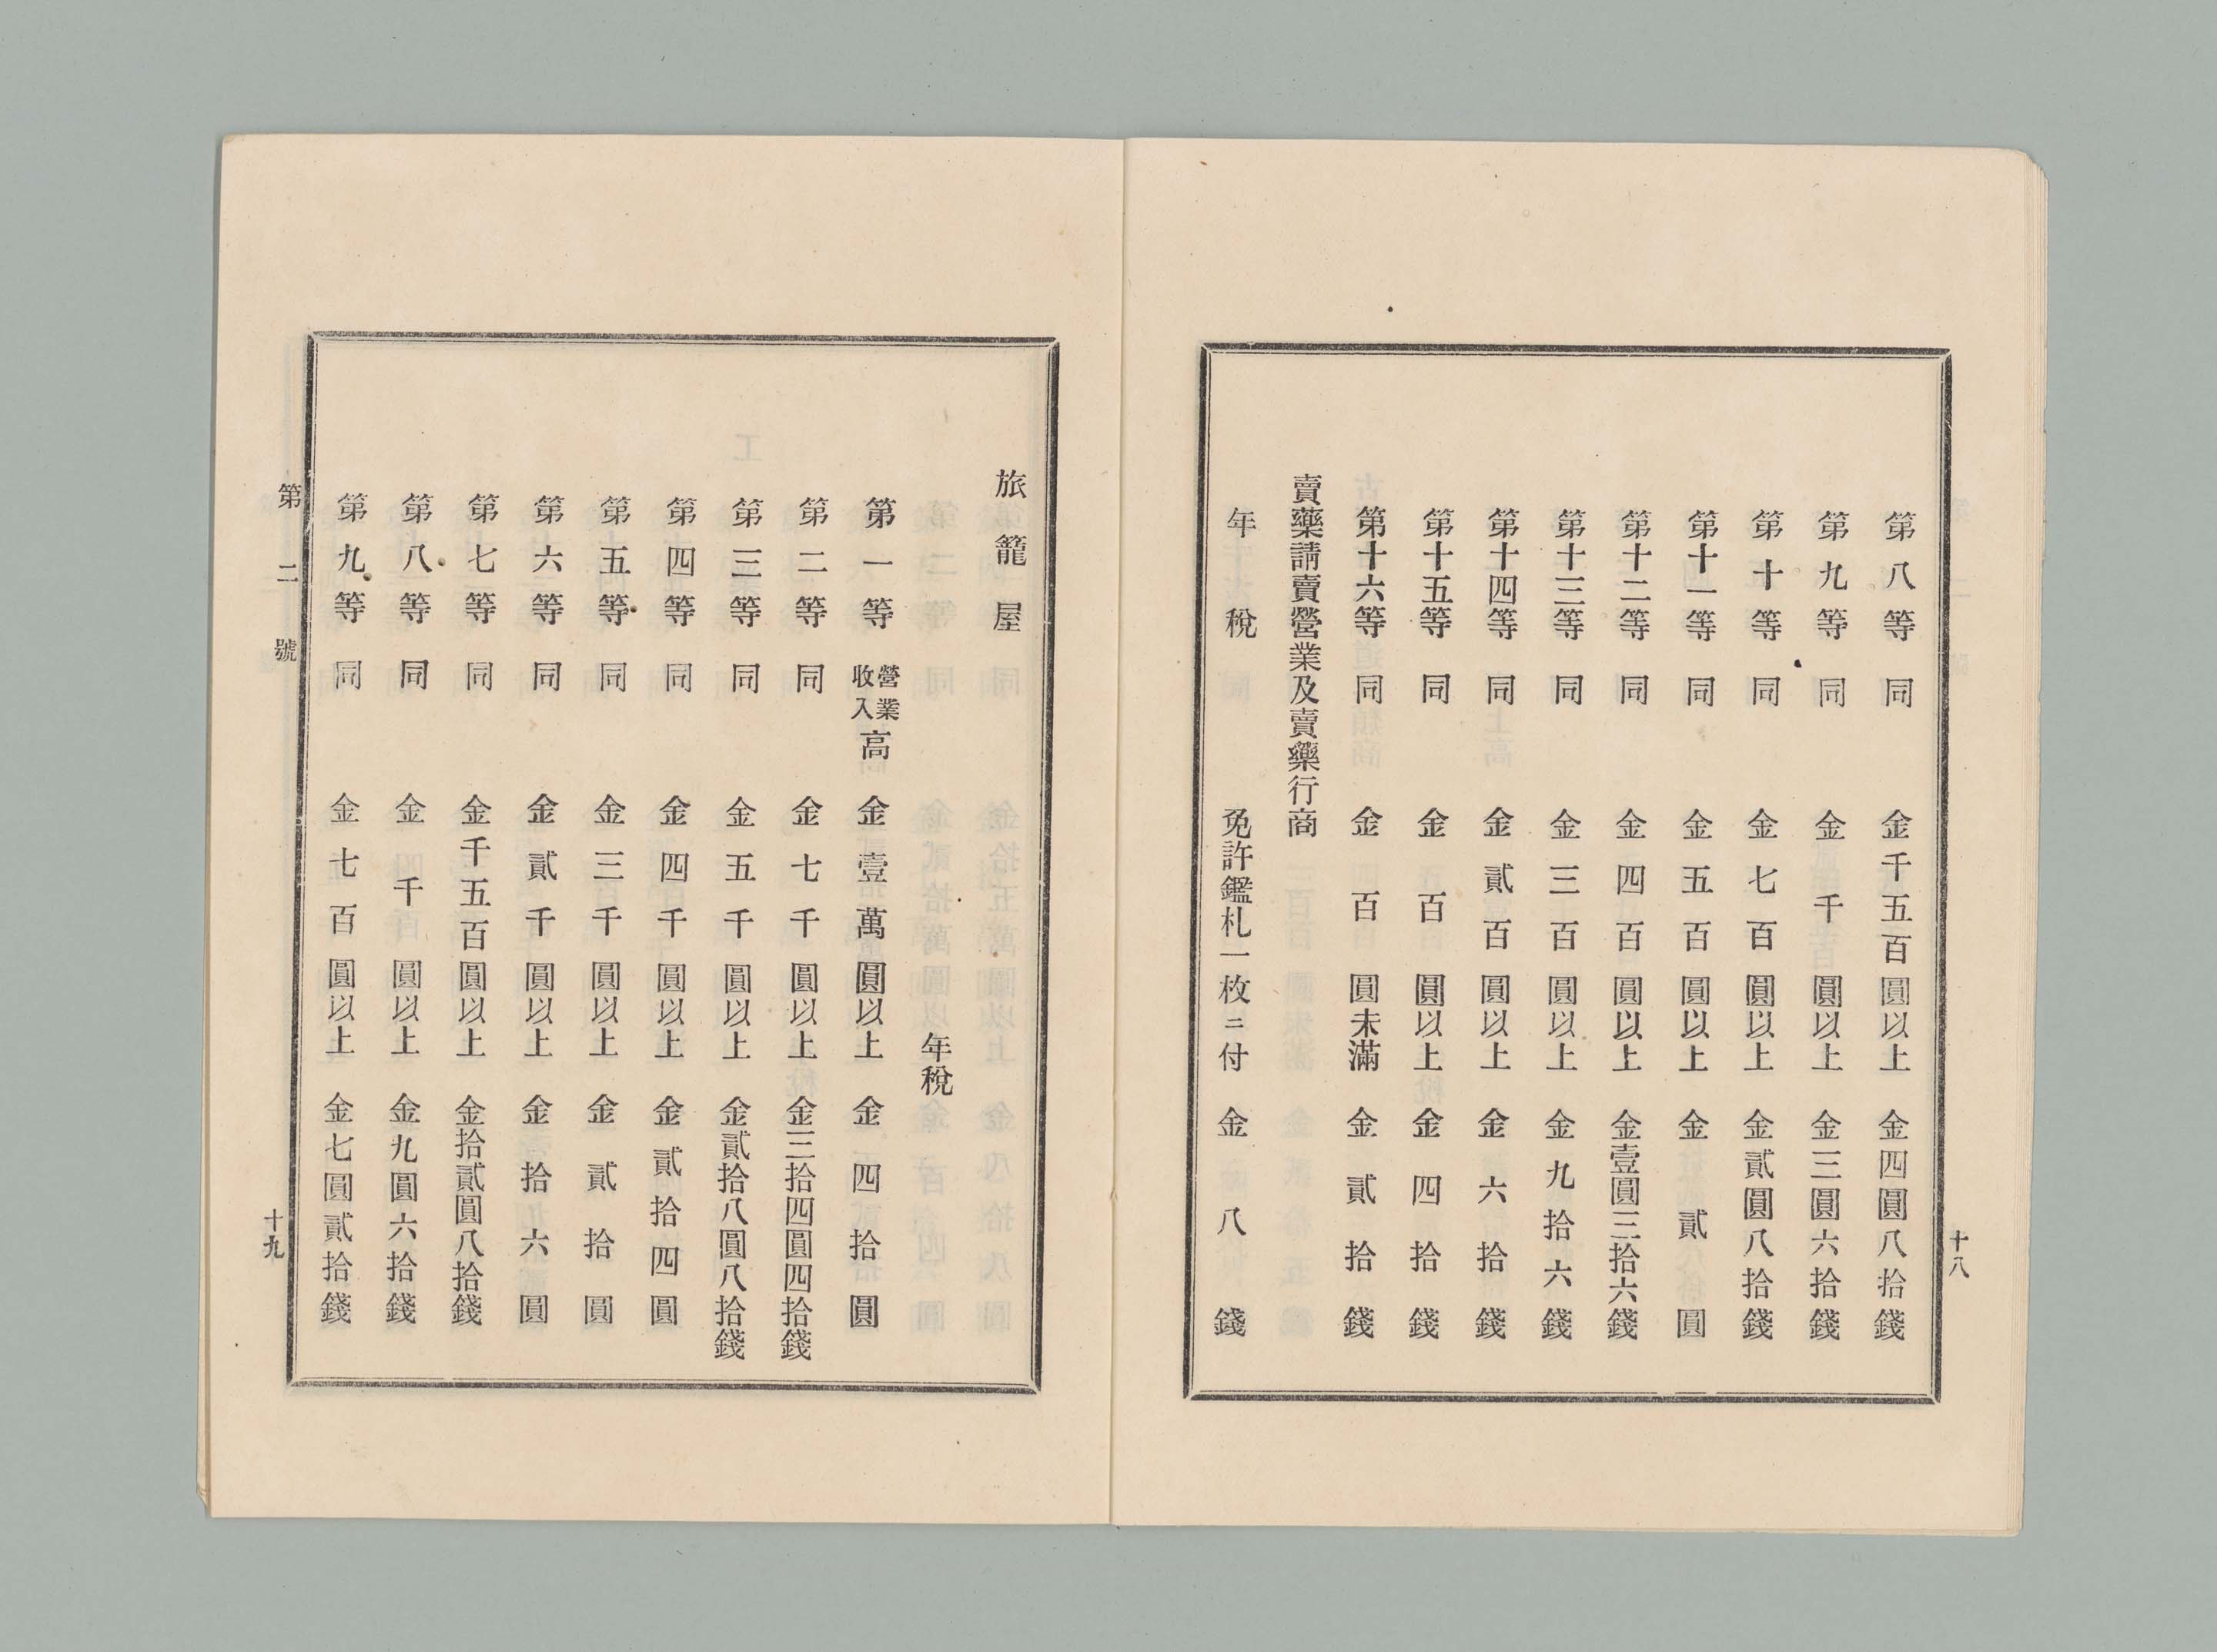 第八等 同 金千五百圓以上 金四圓八拾錢
第九等 同 金千圓以上 金三圓六拾錢
第十等 同 金七百圓以上 金貳圓八拾錢
第十一等 同 金五百圓以上 金貳圓
第十二等 同 金四百圓以上 金壹圓三拾六錢
第十三等 同 金三百圓以上 金九拾六錢
第十四等 同 金貳百圓以上 金六拾錢
第十五等 同 金百圓以上 金四拾錢
第十六等 同 金百圓未滿 金貳拾錢
賣藥請賣營業及賣藥行商
年稅 免許鑑札一枚ニ付 金八錢
十八
旅籠屋
年稅
第一等 營業收入高 金壹萬圓以上 金四拾圓
第二等 同 金七千圓以上 金三拾四圓四拾錢
第三等 同 金五千圓以上 金貳拾八圓八拾錢
第四等 同 金四千圓以上 金貳拾四圓
第五等 同 金三千圓以上 金貳拾圓
第六等 同 金貳千圓以上 金拾六圓
第七等 同 金千五百圓以上 金拾貳圓八拾錢
第八等 同 金千圓以上 金九圓六拾錢
第九等 同 金七百圓以上 金七圓貳拾錢
第二號
十九